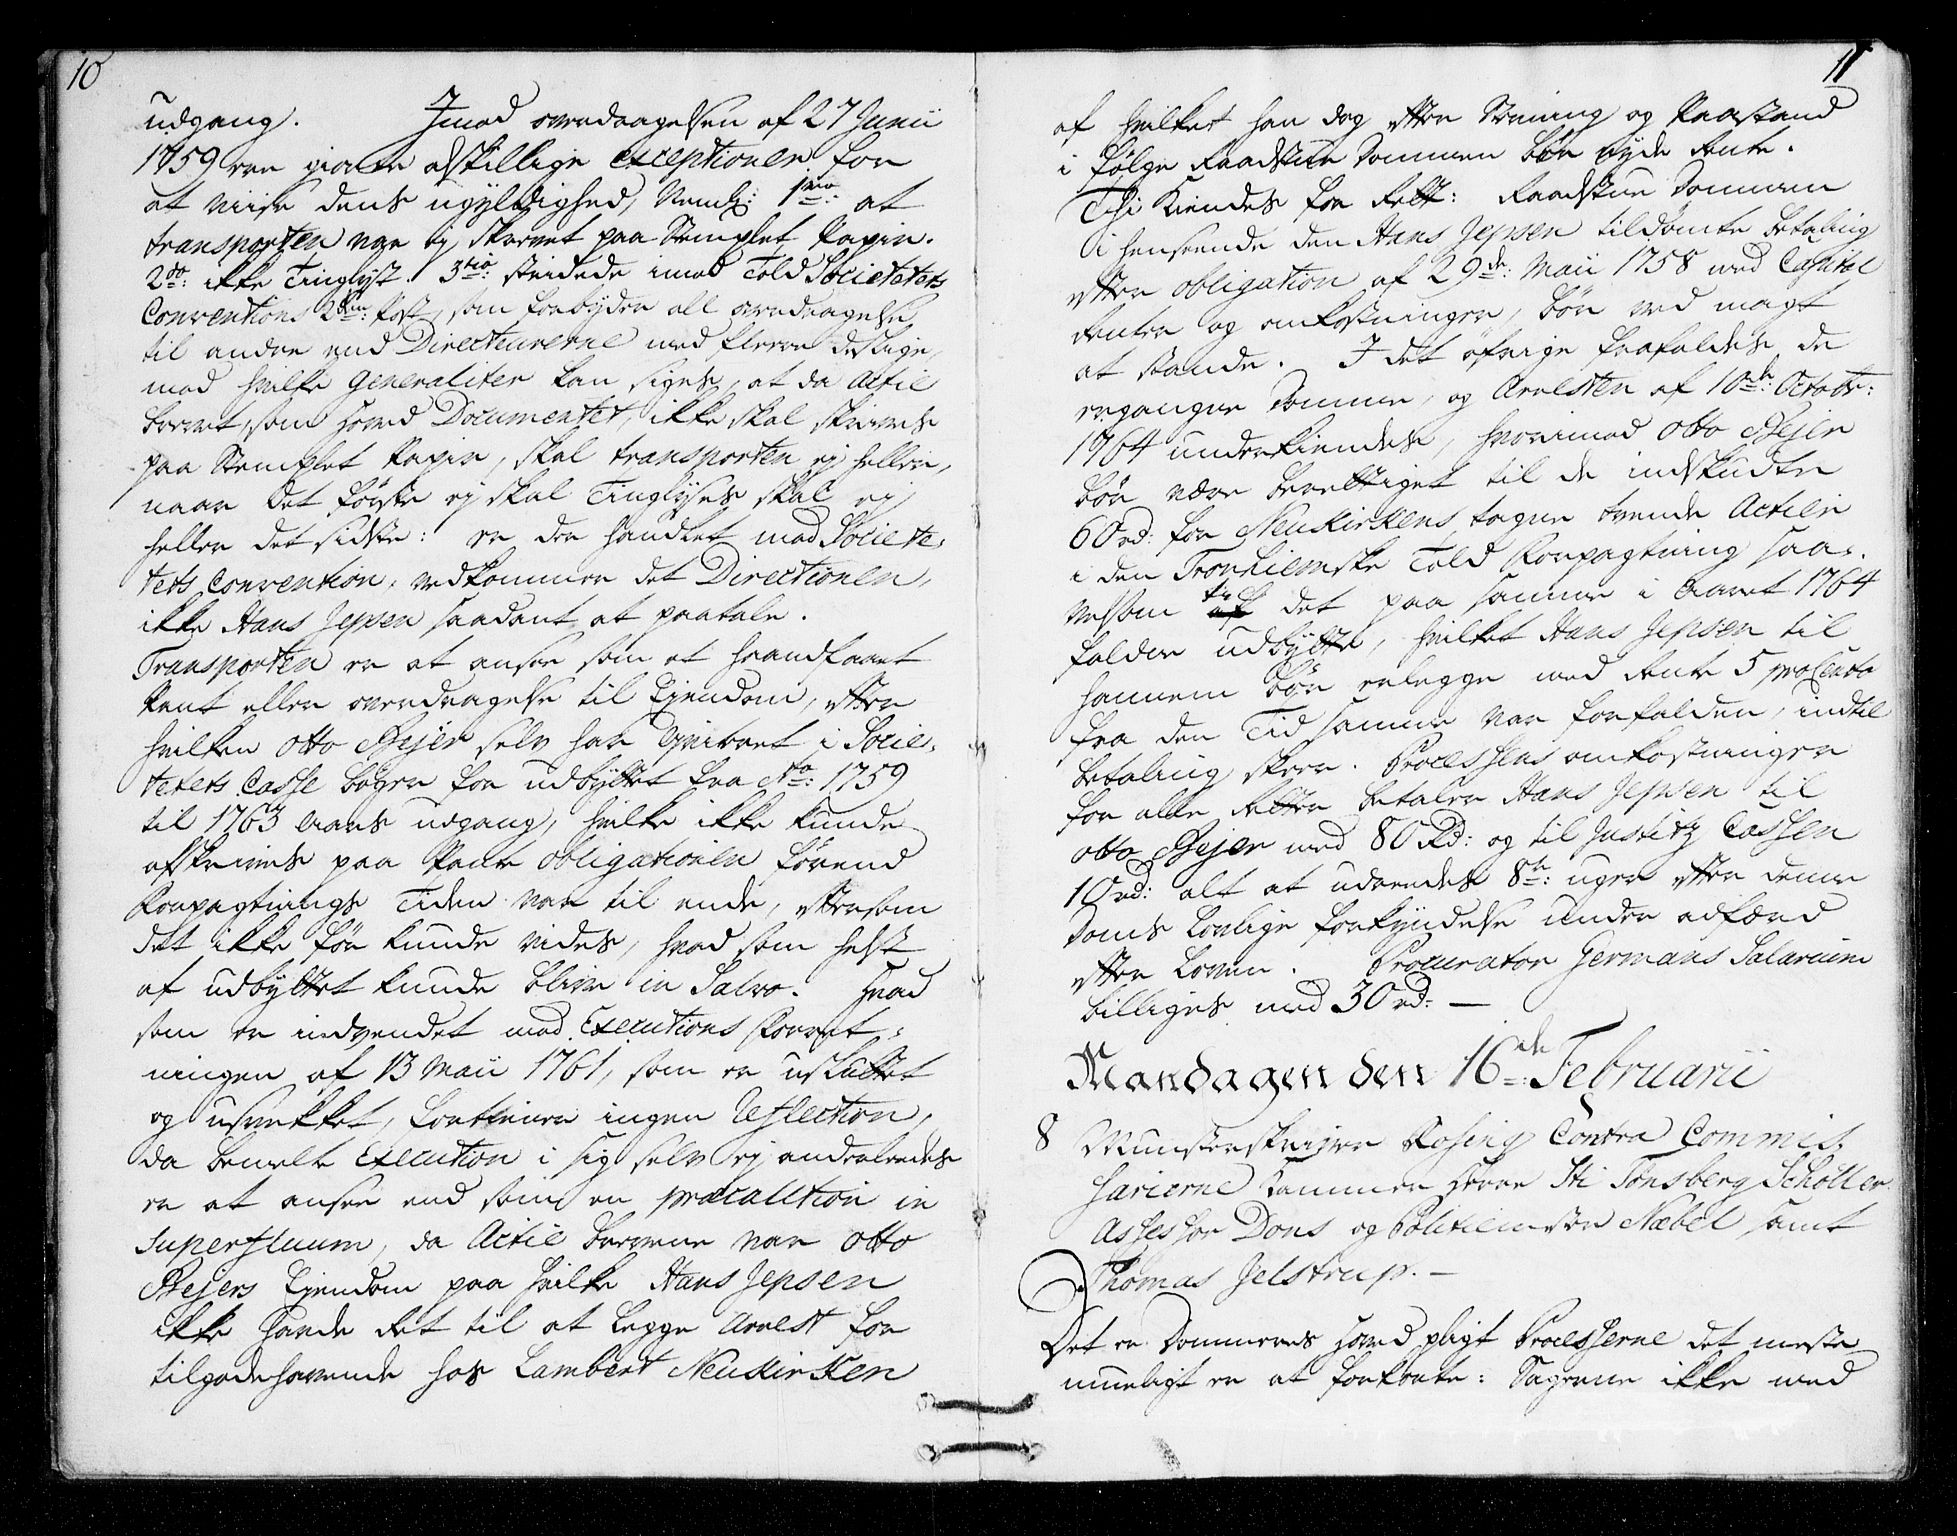 10
udgang. Imod overdragelsen af 27 Junii
1759 ere giorte adskillige exceptioner for
at viise dens ugyldighed, Neml: 1mo: at
transporten var ej skrevet paa Stemplet Papir.
2do: ikke Tinglyst. 3tio: stridede imod Told Societetets
Conventions 2den: Post, som forbyder all overdragelse
til andre end Directeurerne med fleere deslige,
mod hvilke generaliter kan siges, at da Actie
brevet, som Hoved Documentet, ikke skal skrives
paa Stemplet Papir, skal transporten ej heller,
naar det første ej skal Tinglyses skal ej
heller det sidste: er der handlet mod Societe-
tets Convention, vedkommer det Directionen,
ikke Hans Jepsen saadant at paatale.
Transporten er at ansee som et haandfaaet
Pant eller overdragelse til Ejendom, efter
hvilken Otto Bejer selv har qviteret i Socie-
tetets Casse bøger for udbyttet fra Ao: 1759
til 1763 Aars udgang, hvilke ikke kunde
afskrives paa Pante obligationen førend
Forpagtnings Tiden var til ende, eftersom
det ikke før kunde vides, hvad som helst
af udbyttet kunde blive in Salvo. Hvad
som er indvendet mod Executions Forret-
ningen af 13 Maii 1761, som er udslettet
og usvækket, fortiener ingen Reflection,
da bemelte Execution i sig selv ej anderledes
er at ansee end som en præcaution in
superfluum, da Actie brevene var Otto
Bejers Ejendom paa hvilke Hans Jepsen
ikke havde Ret til at legge Arrest for
tilgodehavende hos Lambert Neukirken
11
af hvilket han dog efter Stevning og Paastand
i følge Raadstue Dommen bør nyde Rente.
Thi Kiendes for Rett: Raadstue Dommen
i henseende den Hans Jepsen tildømte betaling
efter obligation af 29de: Maii 1758 med Capital
Renter og omkostninger, bør ved magt
at stande. I det øfrige frafaldes de
ergangne Domme, og Arresten af 10de: Octobr:
1764 underkiendes, hvorimod Otto Bejer
bør være berettiget til de indskudte
60 rd: for Neukirkens tagne tvende Actier
i den Tronhiemske Told Forpagtning saa-
velsom til det paa samme i Aaret 1764
falden udbytte, hvilket Hans Jepsen til
hannem bør erlegge med Rente 5 proCento
fra den Tid samme var forfalden, indtil
betaling skeer. Processens omkostninger
for alle Retter betaler Hans Jepsen til
Otto Bejer med 80 Rd: og til Justitz Cassen
10 rd: alt at udredes 8te: uger efter denne
Doms lovlige forkyndelse under adfærd
efter Loven. Procurator Germans Salarium
billiges med 30 rd: —
Mandagen den 16de: Februarii
8 Munsterskriver Rosing Contra Commis-
sarierne Cammer Herre Sti Tonsberg Scholler
Assessor Dons og Politiemester Næbel, samt
Thomas Jelstrup. —
Det er Dommernes Hoved pligt Processerne det meste
mueligt er at forkorte: Sagerne ikke med